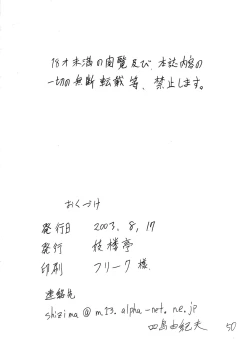 18才未満の閲覧及び、本誌内容の
一切の無断転載等、禁止します。
おくづけ
発行日 2003. 8, 17
発行 伎楼亭
印刷 フリーク様
連絡先
shizima@m13.alpha-net.ne.jp
四島由紀夫 50